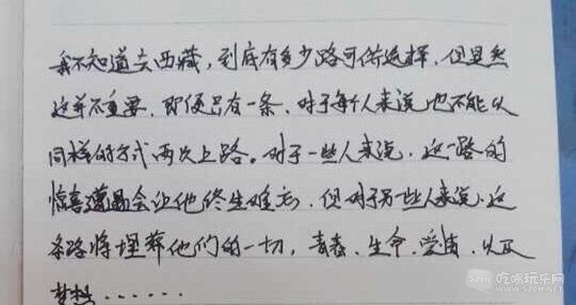 我不知道去西藏，到底有多少路可供选择，但显然
这并不重要，即便只有一条，对于每个人来说也不能以
同样的方式两次上路。对于一些人来说，这一路的
惊喜遭遇会让他终生难忘，但对于另一些人来说，这
条路将埋葬他们的一切，青春、生命、爱情、以及
梦想......
吃喝玩乐网